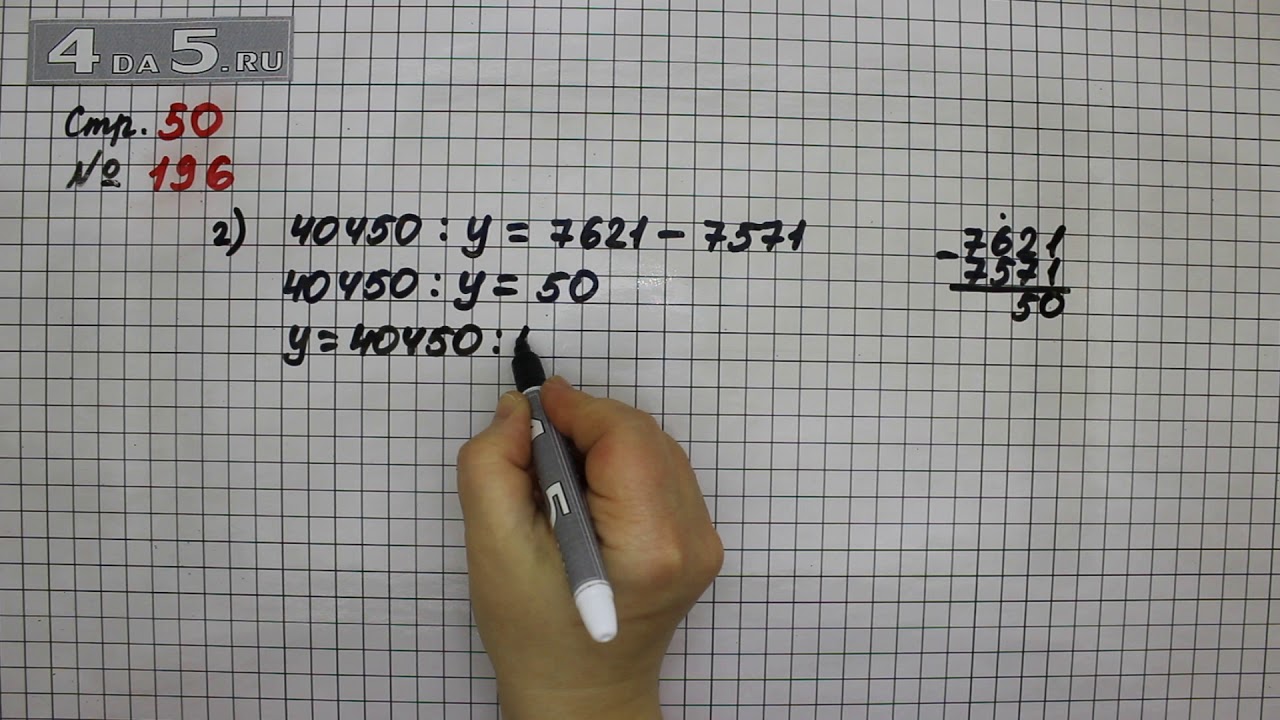 4 DA 5.RU
Стр. 50
№ 196
2) 40450 : y = 7621 - 7571
40450 : y = 50
y = 40450 :
- 7621
7571
50